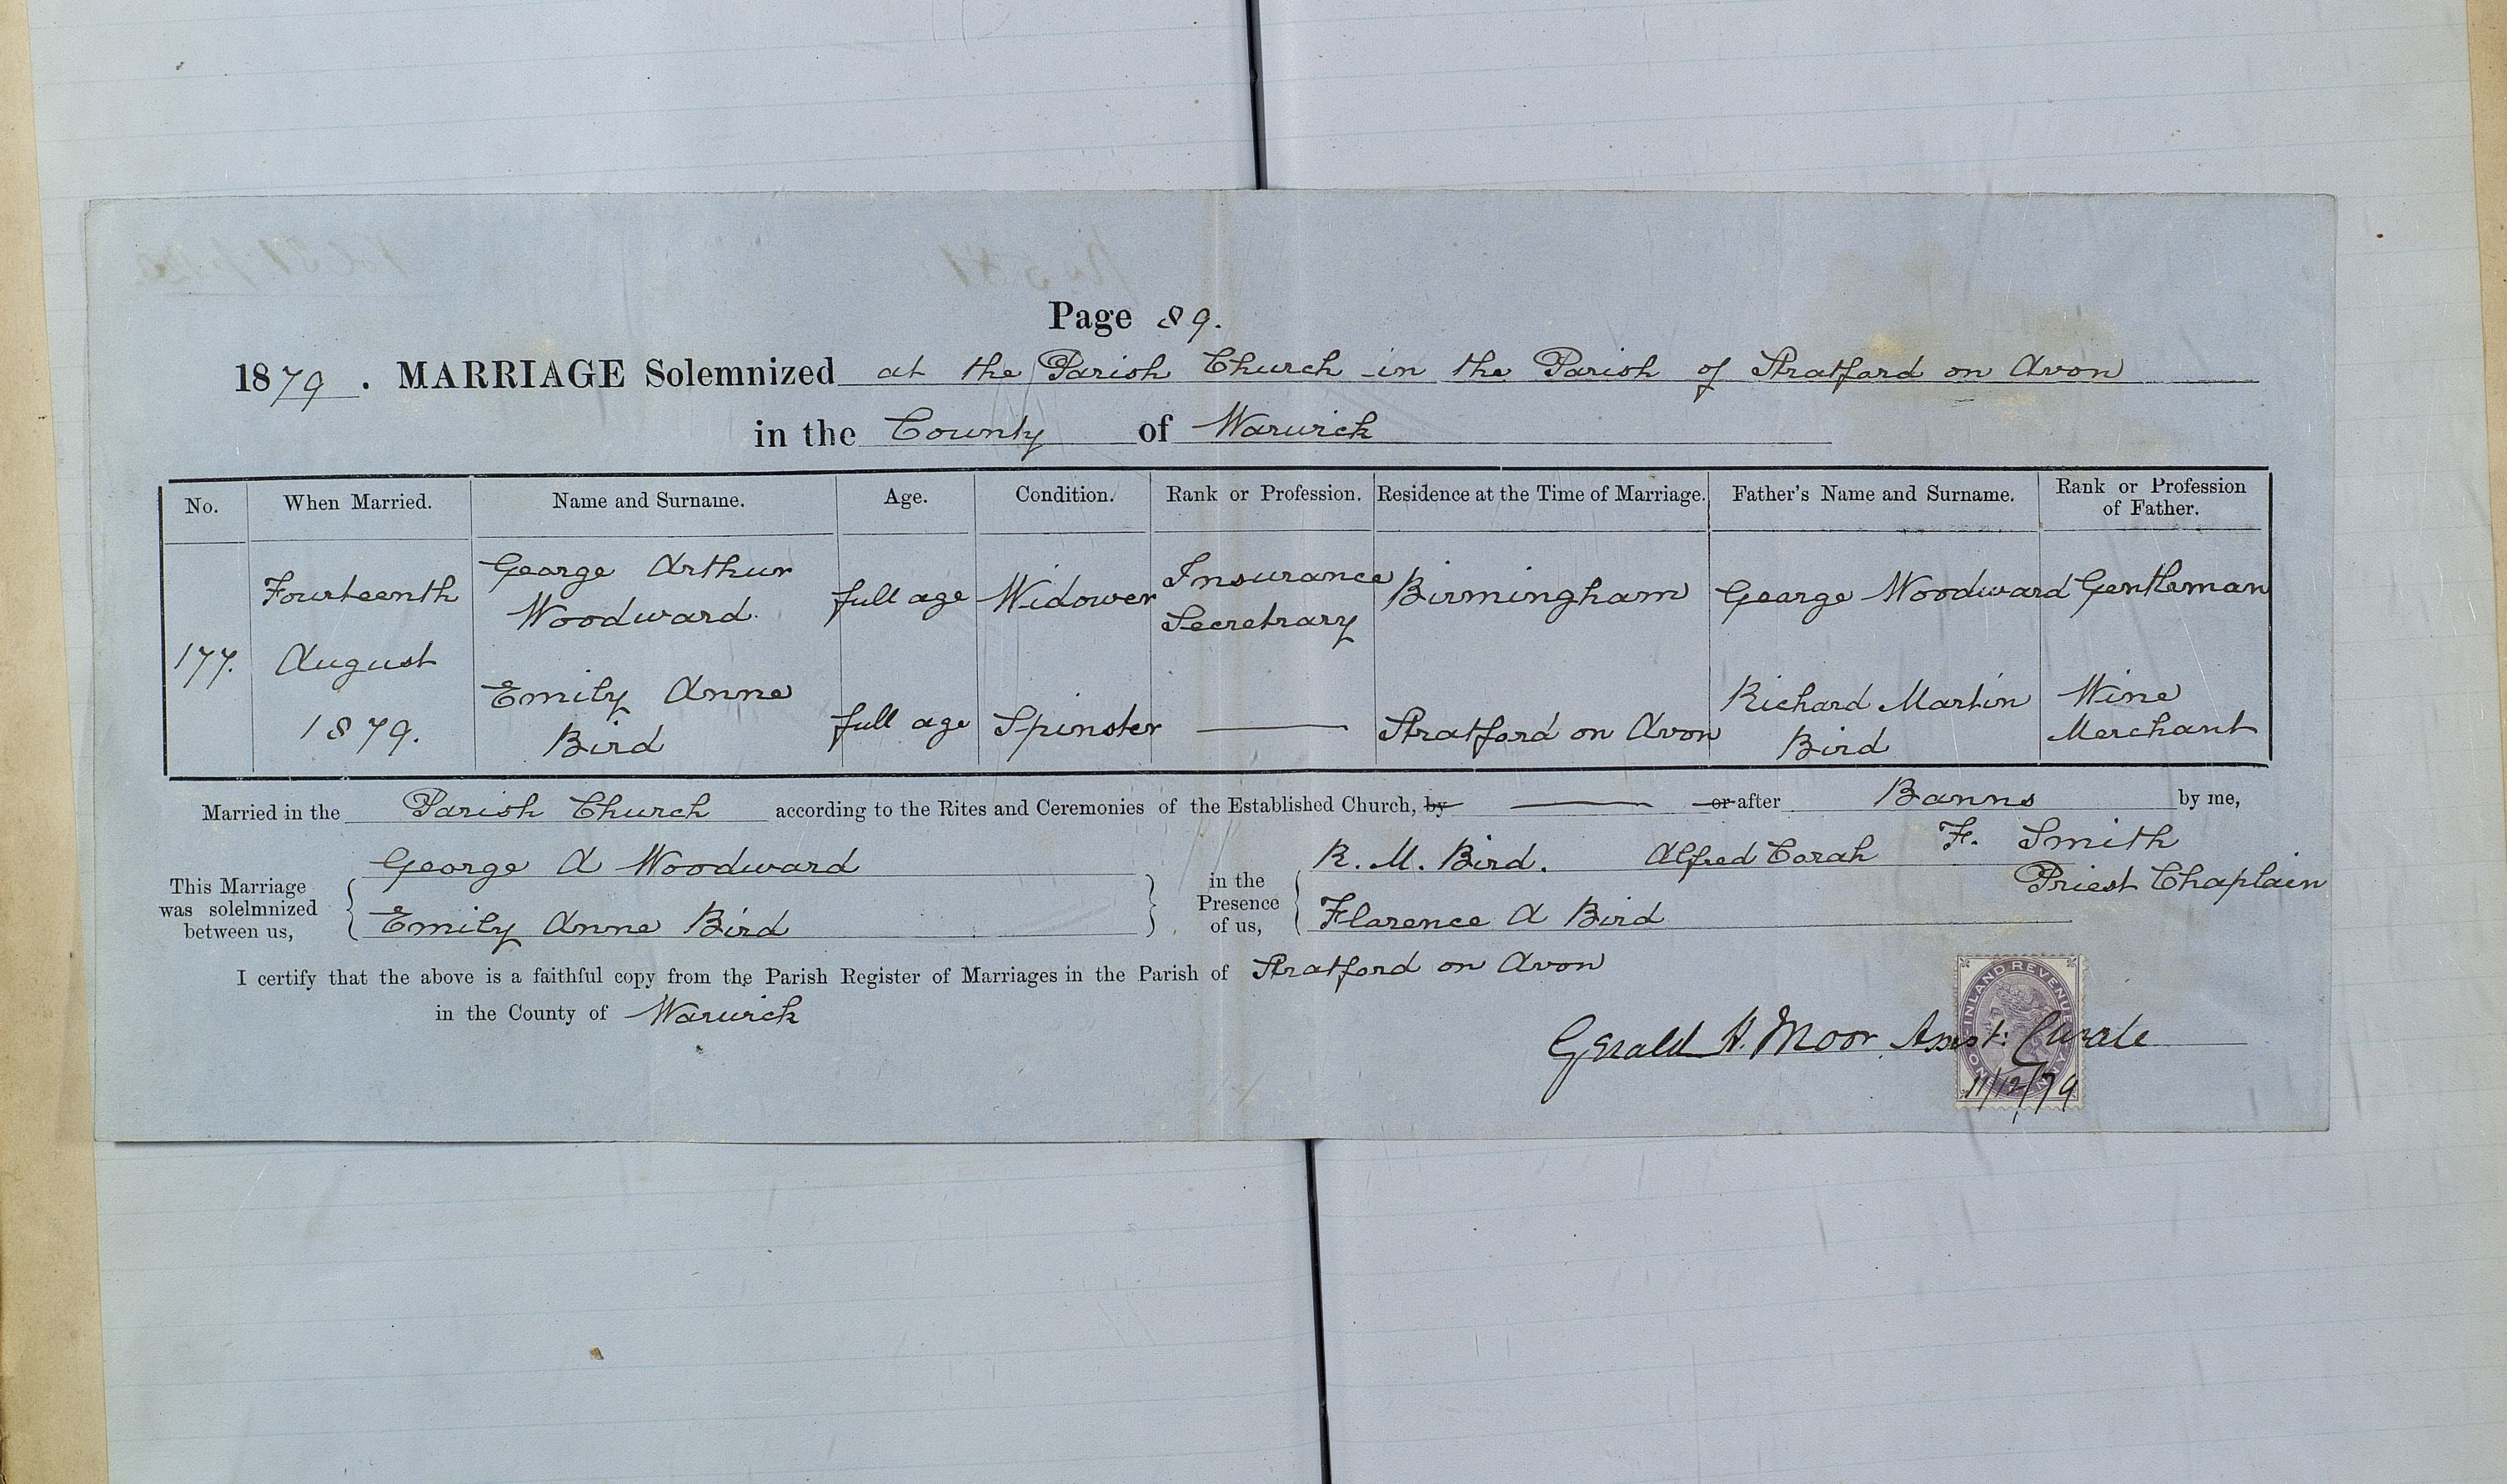 Page 89.
1879. MARRIAGE Solemnized at the Parish Church in the Parish of Stratford on Avon
in the County of Warwick
No. When Married. Name and Surname. Age. Condition. Rank or Profession. Residence at the Time of Marriage. Father's Name and Surname. Rank or Profession of Father.
177. Fourteenth August 1879.
George Arthur Woodward. full age Widower Insurance Secretrary Birmingham George Woodward Gentleman
Emily Anne Bird full age Spinster — Stratford on Avon Richard Martin Bird Wine Merchant
Married in the Parish Church according to the Rites and Ceremonies of the Established Church, by — or after Banns by me,
F. Smith
Priest Chaplain
This Marriage was solelmnized between us,
George A Woodward
Emily Anne Bird
in the Presence of us,
R. M. Bird. Alfred Corah
Florence A Bird
I certify that the above is a faithful copy from the Parish Register of Marriages in the Parish of Stratford on Avon
in the County of Warwick
Gerald H. Moor. Assist: Curate
INLAND REVENUE
ONE PENNY
11/12/79